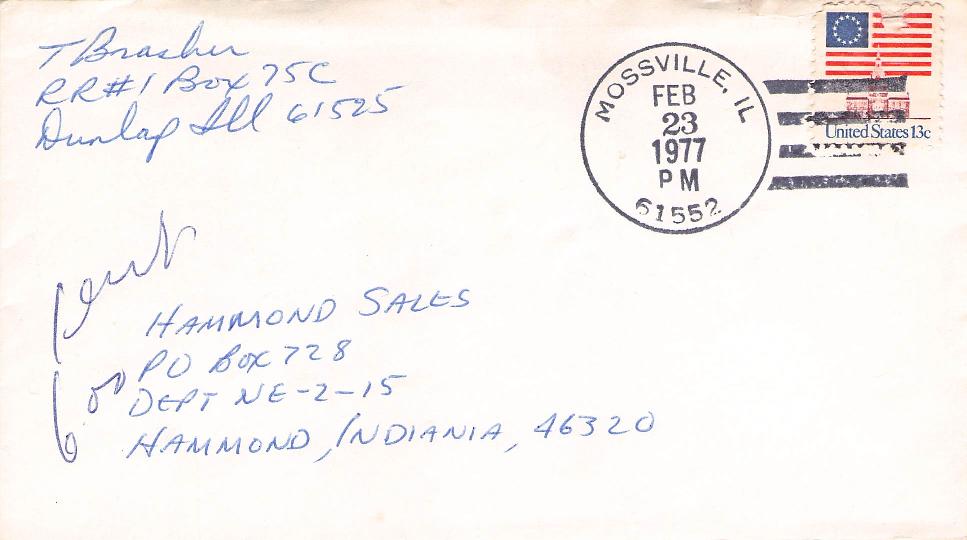 T Brasher
RR#1 Box 75C
Dunlap Ill 61525
MOSSVILLE, IL
FEB
23
1977
PM
61552
United States 13c
HAMMOND SALES
PO BOX 728
DEPT NE-2-15
HAMMOND, INDIANIA, 46320